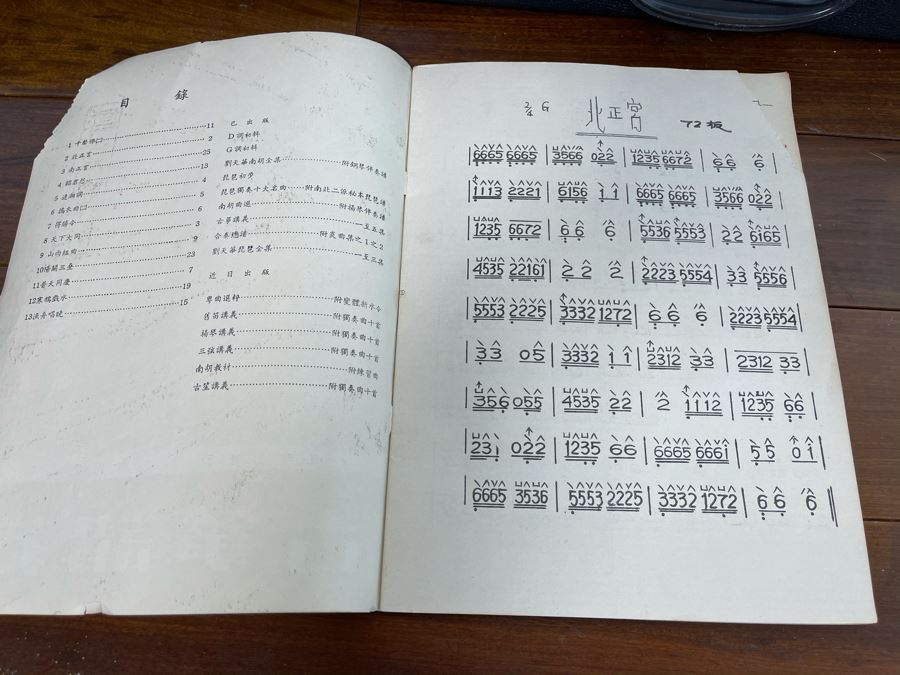 目 錄
2 北正宮 2
3 南正宮 25
4 昭君怨 13
7 得勝令 6
8 天下大同 3
10陽關三叠 23
11普天同慶 7
12寒鴉戲水 19
13漁舟唱晚 15
已 出 版
D調初科
G調初科
劉天華南胡全集 附鋼琴伴奏譜
琵琶初步
琵琶獨奏十大名曲 附南北二派秘本琵琶譜
南胡曲選 附揚琴伴奏譜
古箏講義 一至五集
合奏總譜
劉天華琵琶全集 一至三集
近 日 出 版
粤曲選粹
笛講義 附獨奏曲十首
揚琴講義 附獨奏曲十首
三弦講義 附獨奏曲十首
南胡教材 附練習曲
古笙講義 附獨奏曲十首
2/4 G 北正宮 72板
6665 6665 | 3566 022 | 1235 6672 | 66 6
1113 2221 | 6156 11 | 6665 6665 | 3566 022
1235 6672 | 66 6 | 5536 5553 | 22 6165
4535 22161 | 22 2 | 2223 5554 | 33 5556
5553 2225 | 3332 1272 | 66 6 | 2223 5554
33 05 | 3332 11 | 2312 33 | 2312 33
356 055 | 4535 22 | 2 1112 | 1235 66
231 022 | 1235 66 | 6665 6661 | 55 01
6665 3536 | 5553 2225 | 3332 1272 | 66 6